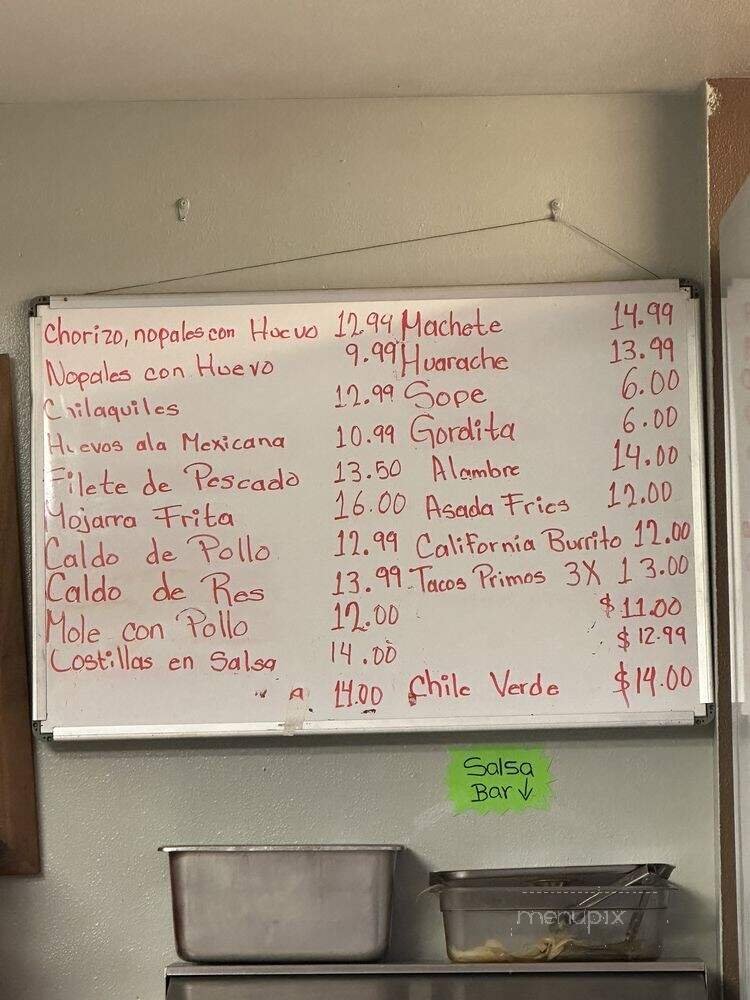 Chorizo, nopales con Huevo 12.99 Machete 14.99
Nopales con Huevo 9.99 Huarache 13.99
Chilaquiles 12.99 Sope 6.00
Huevos ala Mexicana 10.99 Gordita 6.00
Filete de Pescado 13.50 Alambre 14.00
Mojarra Frita 16.00 Asada Fries 12.00
Caldo de Pollo 12.99 California Burrito 12.00
Caldo de Res 13.99 Tacos Primos 3X 13.00
Mole con Pollo 12.00 $11.00
Costillas en Salsa 14.00 $12.99
14.00 Chile Verde $14.00
Salsa
Bar ↓
menupix